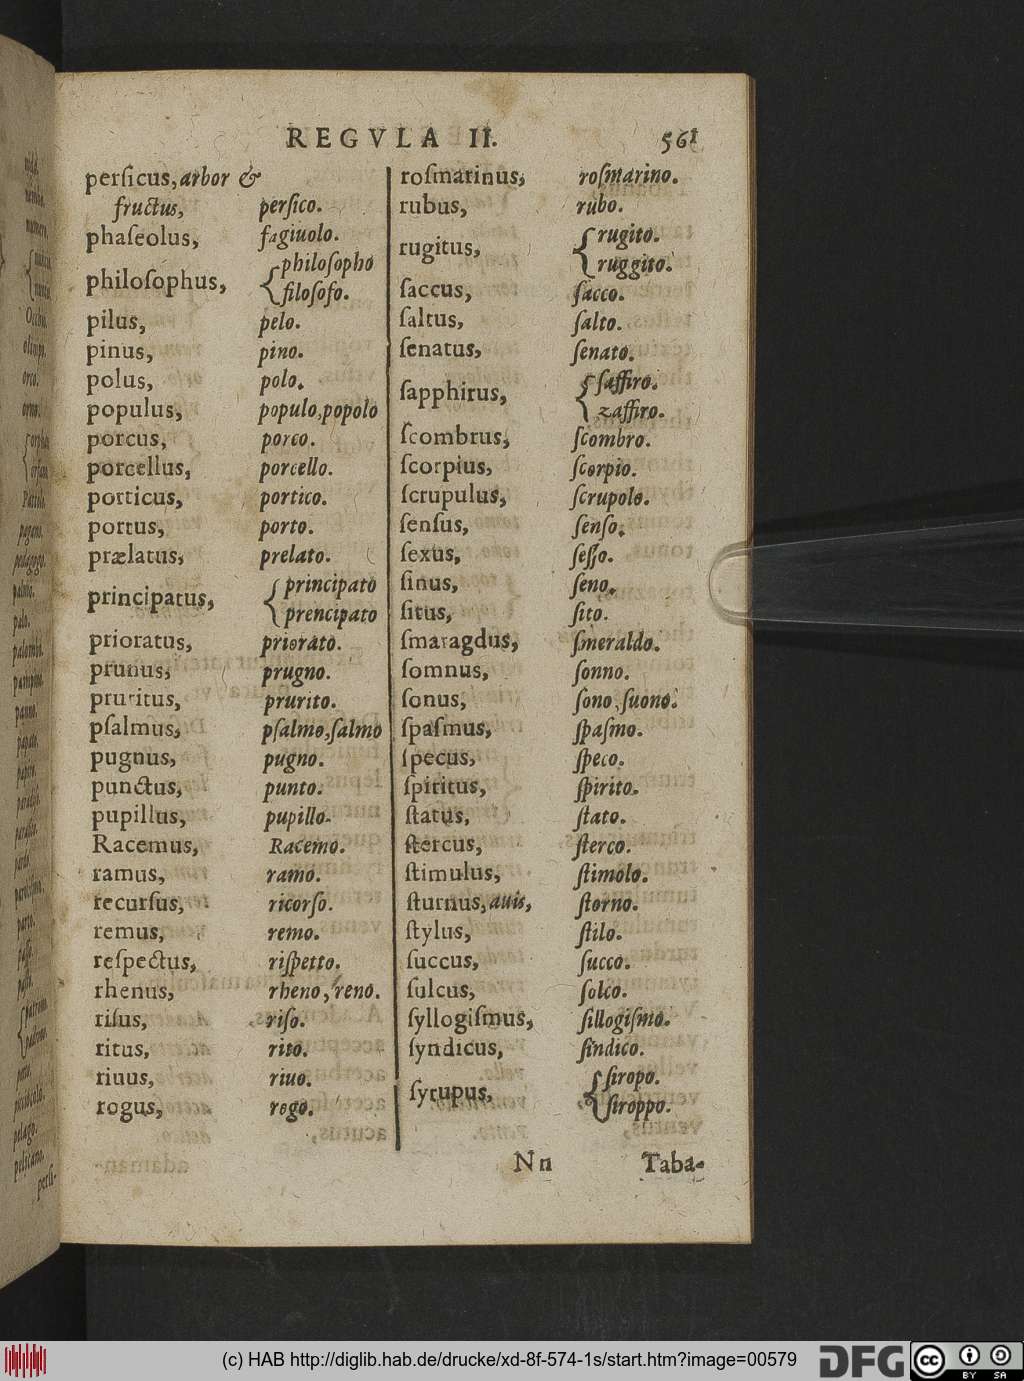 REGVLA II. 561
perſicus, arbor &
fructus, perſico.
phaſeolus, fagiuolo.
philoſophus, { philoſopho
filoſofo.
pilus, pelo.
pinus, pino.
polus, polo.
populus, populo, popolo
porcus, porco.
porcellus, porcello.
porticus, portico.
portus, porto.
prælatus, prelato.
principatus, { principato
prencipato
prioratus, priorato.
prunus, prugno.
pruritus, prurito.
pſalmus, pſalmo, ſalmo
pugnus, pugno.
punctus, punto.
pupillus, pupillo.
Racemus, Racemo.
ramus, ramo.
recurſus, ricorſo.
remus, remo.
reſpectus, riſpetto.
rhenus, rheno, reno.
riſus, riſo.
ritus, rito.
riuus, riuo.
rogus, rogo.
roſmarinus, roſmarino.
rubus, rubo.
rugitus, { rugito.
ruggito.
ſaccus, ſacco.
ſaltus, ſalto.
ſenatus, ſenato.
ſapphirus, { ſaffiro.
zaffiro.
ſcombrus, ſcombro.
ſcorpius, ſcorpio.
ſcrupulus, ſcrupolo.
ſenſus, ſenſo.
ſexus, ſeſſo.
ſinus, ſeno.
ſitus, ſito.
ſmaragdus, ſmeraldo.
ſomnus, ſonno.
ſonus, ſono, ſuono.
ſpaſmus, ſpaſmo.
ſpecus, ſpeco.
ſpiritus, ſpirito.
ſtatus, ſtato.
ſtercus, ſterco.
ſtimulus, ſtimolo.
ſturnus, auis, ſtorno.
ſtylus, ſtilo.
ſuccus, ſucco.
ſulcus, ſolco.
ſyllogiſmus, ſillogiſmo.
ſyndicus, ſindico.
ſyrupus, { ſiropo.
ſiroppo.
Nn Taba-
(c) HAB http://diglib.hab.de/drucke/xd-8f-574-1s/start.htm?image=00579
DFG
cc BY SA